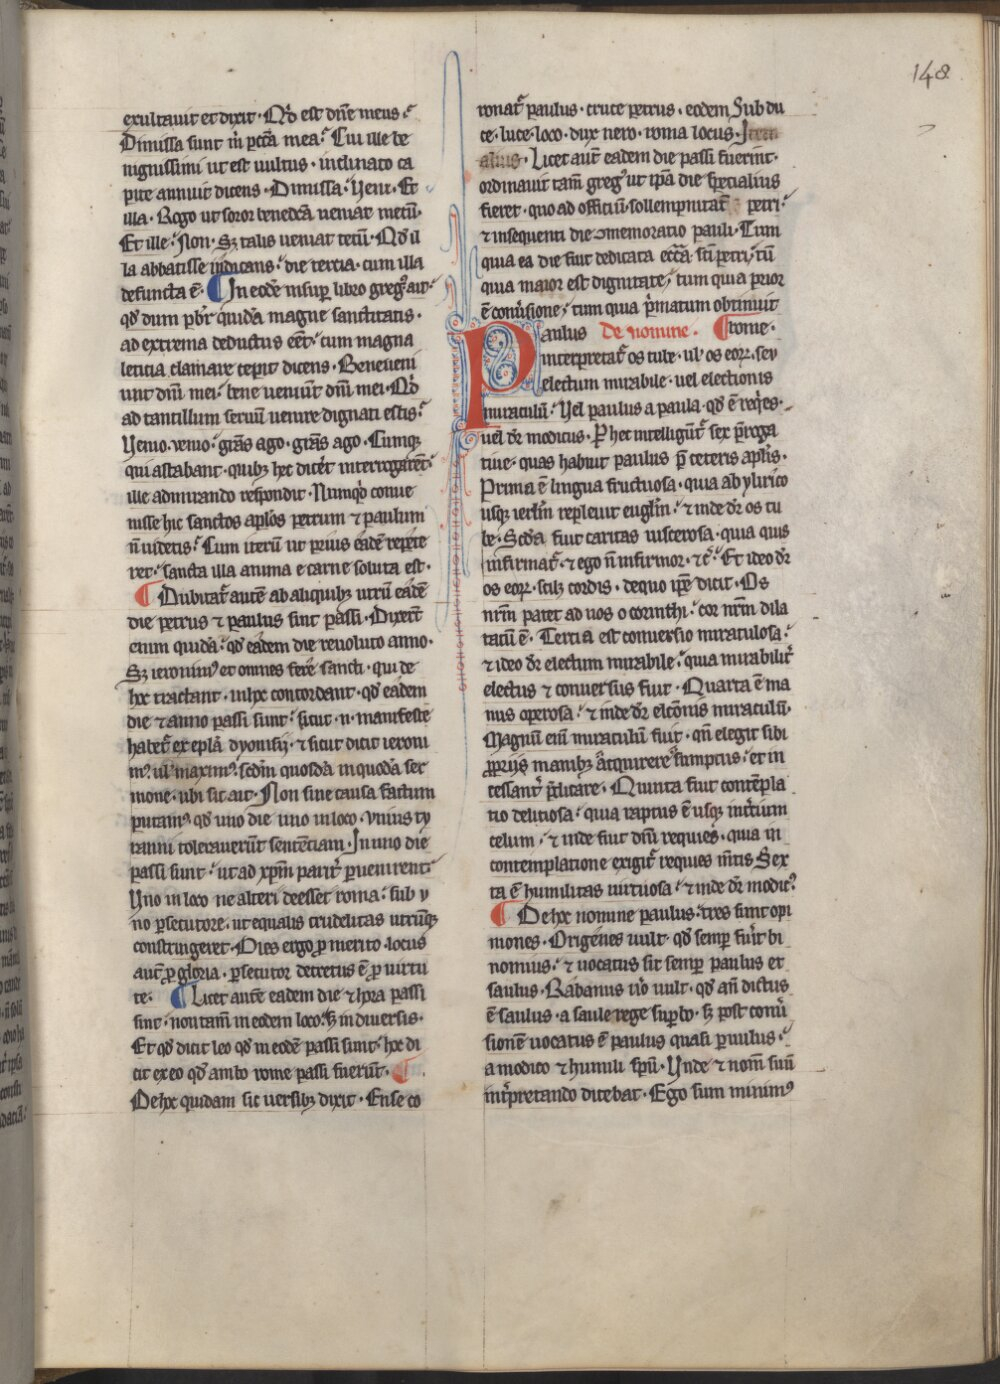 148
exultauit et dixit · Q'd est dn̄e meus ·
Dimissa sunt m̄ pcc̄a mea · Cui ille be
nignissimi ut est uultus · inclinato ca
pite annuit dicens · Dimissa · Veni · Et
illa · Rogo ut soror benedc̄a ueniat mecū ·
Et ille · Non · Sꝫ talis ueniat tecū · Qd̄ il
la abbatisse indicans · die tercia · cum illa
defuncta ē · ¶ In eodē insuꝑ libro greg᷒ ait ·
qd̄ dum pb̄r quidā magne sanctitatis ·
ad extrema deductus eēt · cum magna
leticia clamare cepit dicens · Beneueni
unt dn̄i mei · bene ueniūt dn̄i mei · Q'd
ad tantillum seruū uenire dignati estis ·
Venio · uenio · grās ago · grās ago · Cumqꝫ
qui astabant · quibꝫ hec dicēt interrogarēt ·
ille admirando respondit · Numqd̄ conue
nisse hic sanctos apl̄os petrum ⁊ paulum
n̄ uidetis · Cum iterū ut prius eadē repete
ret · sancta illa anima e carne soluta est ·
¶ Dubitat᷒ autē ab aliquibꝫ utrū eadē
die petrus ⁊ paulus sint passi · Dixerūt
enim quidā · qd̄ eadem die reuoluto anno ·
Sꝫ ieronim᷒ et omnes fere sancti · qui de
hoc tractant · in hoc concordant · qd̄ eadem
die ⁊ anno passi sunt · sicut · n · manifeste
habet᷒ ex epl̄a dyonisij · ⁊ sicut dicit ieroni
m᷒ · ul̄ maxim᷒ · scdm̄ quosdā in quodā ser
mone · ubi sic ait · Non sine causa factum
putam᷒ qd̄ uno die uno in loco · vnius ty
ranni tolerauerūt sentenciam · In uno die
passi sunt · ut ad xpm̄ parit᷒ ꝑuenirent ·
Vno in loco ne alteri deesset roma · sub v
no ꝑsecutore · ut equalis crudelitas utrūqꝫ
constringeret · Dies ergo ꝓ merito · locus
aut̄ ꝓ gloria · ꝑsecutor decretus ē ꝓ uirtu
te · ¶ Licet autē eadem die ⁊ hora passi
sint · non tam̄ in eodem loco · sꝫ in diuersis ·
Et qd̄ dicit leo qd̄ in eodē passi sunt · hoc di
cit ex eo qd̄ ambo rome passi fuerūt · ¶
De hoc quidam sic uersibꝫ dixit · Ense co
ronat᷒ paulus · cruce petrus · eodem Sub du
ce · luce · loco · dux nero · roma locus · Item
alius · Licet aut̄ eadem die passi fuerint ·
ordinauit tam̄ greg᷒ ut ip̄a die specialius
fieret · quo ad officiū · sollempnitat᷒ petri ·
⁊ insequenti die ꝯmemoratio pauli · Tum
quia ea die fuit dedicata ecc̄a sc̄i petri · tū
quia maior est dignitate · tum quia prior
ē conu̓sione · tum quia p̓matum obtinuit
Paulus De nomine . ¶ rome ·
interpretat᷒ os tube · ul̄ os eoꝝ · seu
electum mirabile · uel electionis
miraculū · Vel paulus a paula · qd̄ ē reqes ·
uel dr̄ modicus · Per hec intelligūt᷒ sex p̄roga
tiue · quas habuit paulus p̄ ceteris apl̄is ·
Prima ē lingua fructuosa · quia ab ylirico
usqꝫ ierlm̄ repleuit euglm̄ · ⁊ inde dr̄ os tu
be · Scd̄a fuit caritas uiscerosa · quia quis
infirmat᷒ · ⁊ ego n̄ infirmor · ⁊c̄ · Et ideo dr̄
os eoꝝ · scilꝫ cordis · de quo ip̄e dicit · Os
nr̄m patet ad uos o corinthi · cor nr̄m dila
tatū ē · Tercia est conuersio miraculosa ·
⁊ ideo dr̄ electum mirabile · quia mirabilit᷒
electus ⁊ conuersus fuit · Quarta ē ma
nus operosa · ⁊ inde dr̄ elcōnis miraculū ·
Magnū enī miraculū fuit · qn̄ elegit sibi
ꝓpriis manibꝫ acquirere sumptus · et in
cessant᷒ p̄dicare · Quinta fuit contēpla
tio deliciosa · quia raptus ē usqꝫ in t̓cium
celum · ⁊ inde fuit dn̄i requies · quia in
contemplatione exigit᷒ requies m̄tis Sex
ta ē humilitas uirtuosa · ⁊ inde dr̄ modic᷒
¶ De hoc nomine paulus · tres sunt opi
niones · Origenes uult · qd̄ semꝑ fuit bi
nomius · ⁊ uocatus sit semꝑ paulus et
saulus · Rabanus u̓o uult · qd̄ an̄ dictus
ē saulus · a saule rege suꝑbo · sꝫ post conu̓
sionē uocatus ē paulus quasi ꝑuulus ·
a modico ⁊ humili spū · Vnde ⁊ nom̄ suū
int̓pretando dicebat · Ego sum minim᷒